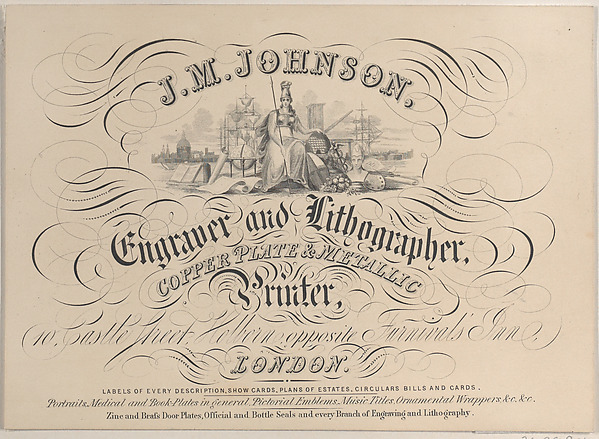 J. M. JOHNSON,
Engraver and Lithographer,
COPPER PLATE & METALLIC
Printer,
10, Castle Street, Holborn, opposite Furnival's Inn,
LONDON.
LABELS OF EVERY DESCRIPTION, SHOW CARDS, PLANS OF ESTATES, CIRCULARS BILLS AND CARDS.
Portraits, Medical and Book Plates in general, Pictorial Emblems, Music Titles, Ornamental Wrappers, &c. &c.
Zinc and Braſs Door Plates, Official and Bottle Seals and every Branch of Engraving and Lithography.